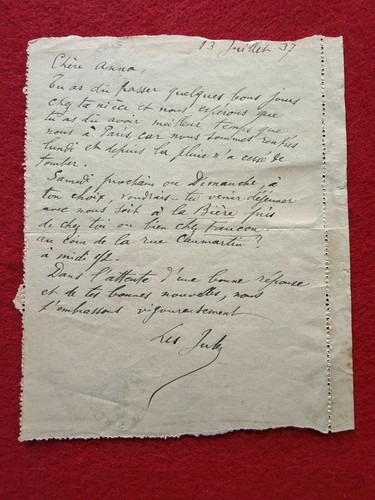 13 Juillet 37
Chère Anna,
Tu as dû passer quelques bons jours
chez ta nièce et nous espérons que
tu as dû avoir meilleur temps que
nous à Paris car nous sommes rentrés
lundi et depuis la pluie n'a cessé de
tomber.
Samedi prochain ou Dimanche, à
ton choix, voudrais-tu venir déjeuner
avec nous soit à la Bière près
de chez toi ou bien chez Faucon
au coin de la rue Caumartin ?
à midi 1/2.
Dans l'attente d'une bonne réponse
et de tes bonnes nouvelles, nous
t'embrassons vigoureusement
Les